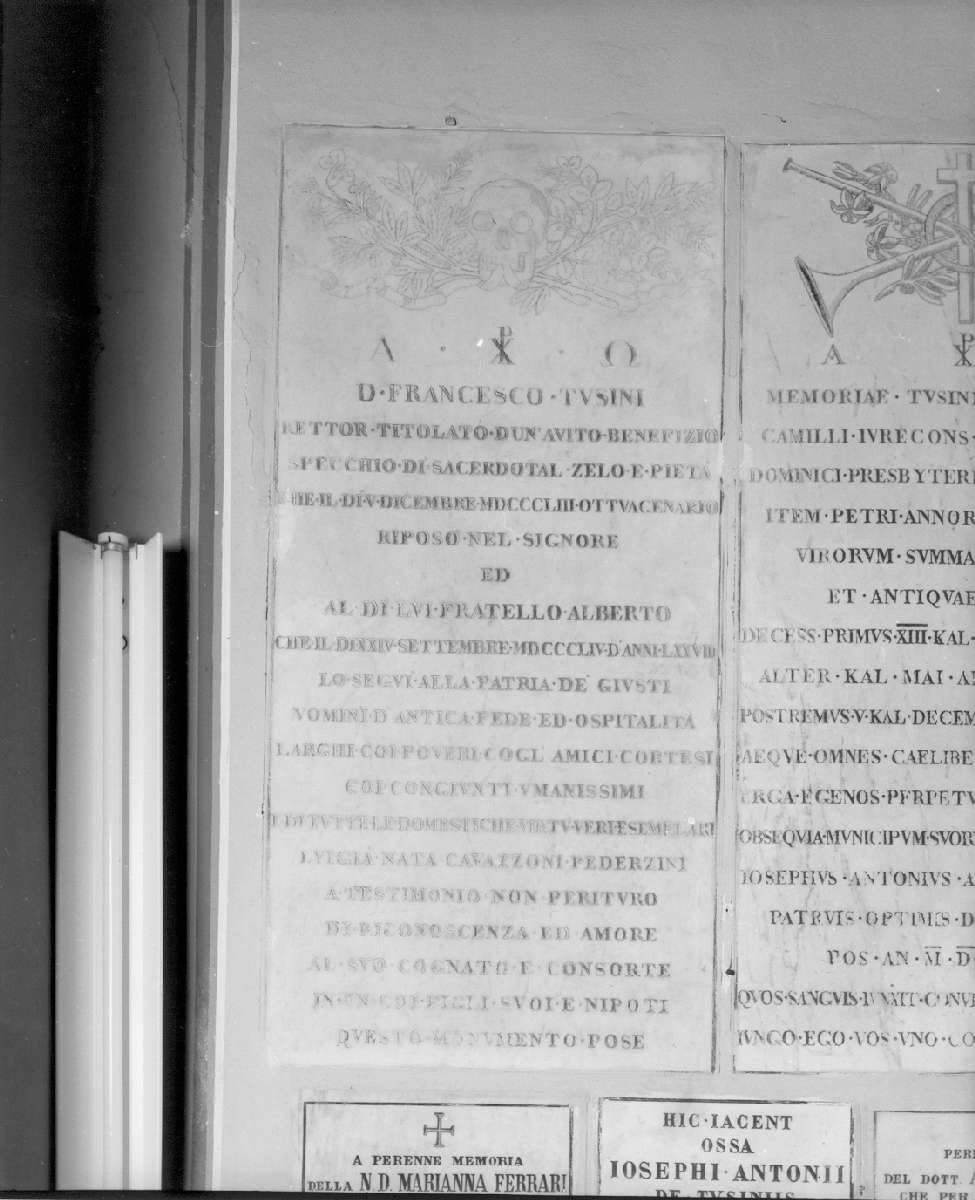 Α · ☧ · Ω
D·FRANCESCO·TVSINI
RETTOR·TITOLATO·D'UN'AVITO·BENEFIZIO
SPECCHIO·DI·SACERDOTAL·ZELO·E·PIETÀ
CHE·IL·DÌ·V·DICEMBRE·MDCCCLIII·OTTVAGENARIO
RIPOSÒ·NEL·SIGNORE
ED
AL·DI·LVI·FRATELLO·ALBERTO
CHE·IL·DÌ·XXIV·SETTEMBRE·MDCCCLIV·D'ANNI·LXXVIII
LO·SEGVÌ·ALLA·PATRIA·DE'·GIVSTI
VOMINI·D'ANTICA·FEDE·ED·OSPITALITÀ
LARGHI·COI·POVERI·COGL'·AMICI·CORTESI
COI·CONGIVNTI·VMANISSIMI
E·DI·TVTTE·LE·DOMESTICHE·VIRTV·VERI·ESEMPLARI
LVIGIA·NATA·CAVAZZONI·PEDERZINI
A·TESTIMONIO·NON·PERITVRO
DI·RICONOSCENZA·ED·AMORE
AL·SVO·COGNATO·E·CONSORTE
IN·UN·COI·FIGLI·SVOI·E·NIPOTI
QVESTO·MONVMENTO·POSE
Α ☧
MEMORIAE·TVSINI
CAMILLI·IVRECONS·
DOMINICI·PRESBYTERI
ITEM·PETRI·ANNOR
VIRORVM·SVMMA
ET·ANTIQVAE
DECESS·PRIMVS·XIII·KAL·
ALTER·KAL·MAI·A
POSTREMVS·V·KAL·DECEM
AEQVE·OMNES·CAELIBE
ERGA·EGENOS·PERPETV
OBSEQVIA·MVNICIPVM·SVOR
IOSEPHVS·ANTONIVS·A
PATRVIS·OPTIMIS·D
POS·AN·M·D
QVOS·SANGVIS·IVNXIT·
IVNGO·EGO·VOS·VNO·CO
A PERENNE MEMORIA
DELLA N.D. MARIANNA FERRARI
HIC·IACENT
OSSA
IOSEPHI·ANTONII
DE·TVSINIIS
PER
DEL DOTT.
CHE PEL